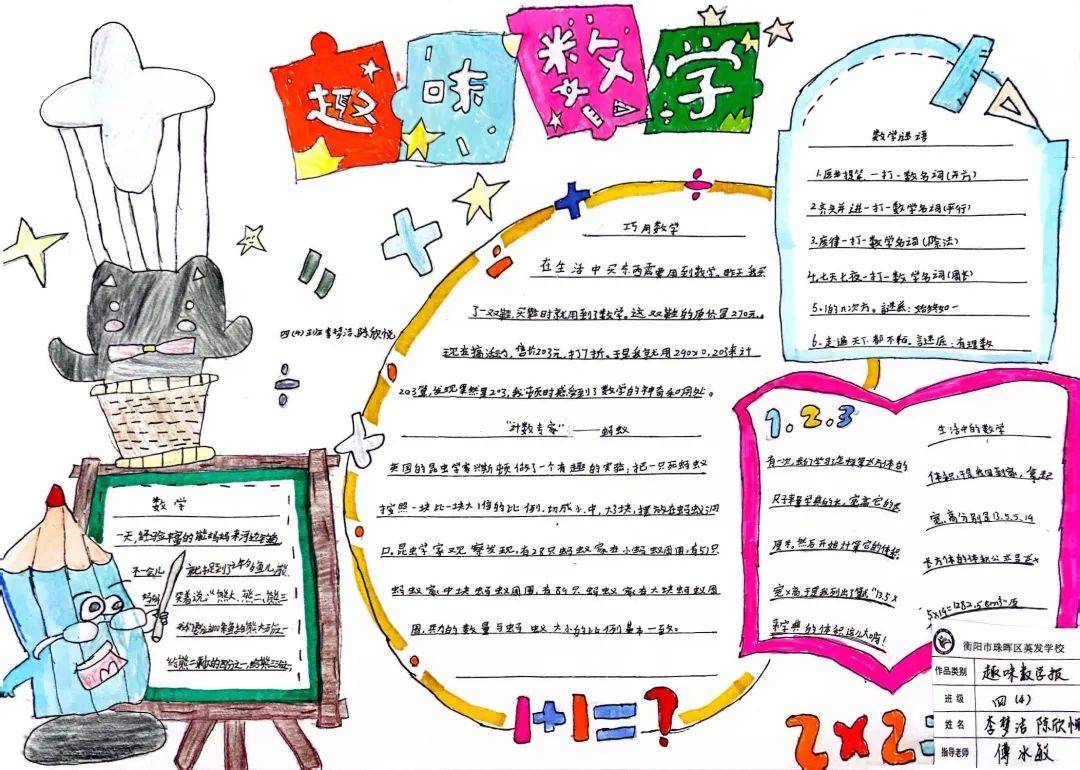 趣味数学
四(4)班李梦洁、陈欣悦
数学谜语
1.医生提笔一打一数名词(开方)
2.齐头并进一打一数学名词(平行)
3.废律一打一数学名词(除法)
4.七天七夜一打一数学名词(周长)
5.1的n次方。謎底:始终如一
6.走遍天下都不怕。謎底:有理数
巧用数学
在生活中买东西需要用到数学。昨天我买
了一双鞋,买鞋时就用到了数学。这双鞋的原价是270元。
现在搞活动,售价203元,打7折。于是我就用290×0.
203算,发现果然是203,我顿时感受到了数学的神奇和用处。
“计数专家”——蚂蚁
英国的昆虫学家兴斯顿做了一个有趣的实验,把一只死蚂蚁
按照一块比一块大1倍的比例,切成小、中、大3块,摆放在蚂蚁洞
口,昆虫学家观察发现,有28只蚂蚁聚在小蚂蚁周围,有51只
蚂蚁聚中块蚂蚁周围,有89只蚂蚁聚在大块蚂蚁周
围,其的数量与蚂蚁大小的比例基本一致。
数学
一天,
不一会儿
笑着说:“熊大、熊二、熊三
1.2.3
有一次,我们学习怎样算长方体的
尺子来量字典的长,宽高它的长
厘米,然后开始计算它的体积
宽×高,于是我列出了算“13.5×
来字典的体积这么大呀!
生活中的数学
体积,于是我回到家,拿起
宽、高分别是13.5、5、19
长方体的体积公式是长×
5×19=1282.5cm³原
1+1=?
2×2=
衡阳市珠晖区英发学校
作品类别 趣味数学报
班级 四(4)
姓名 李梦洁 陈欣悦
指导老师 傅水敏